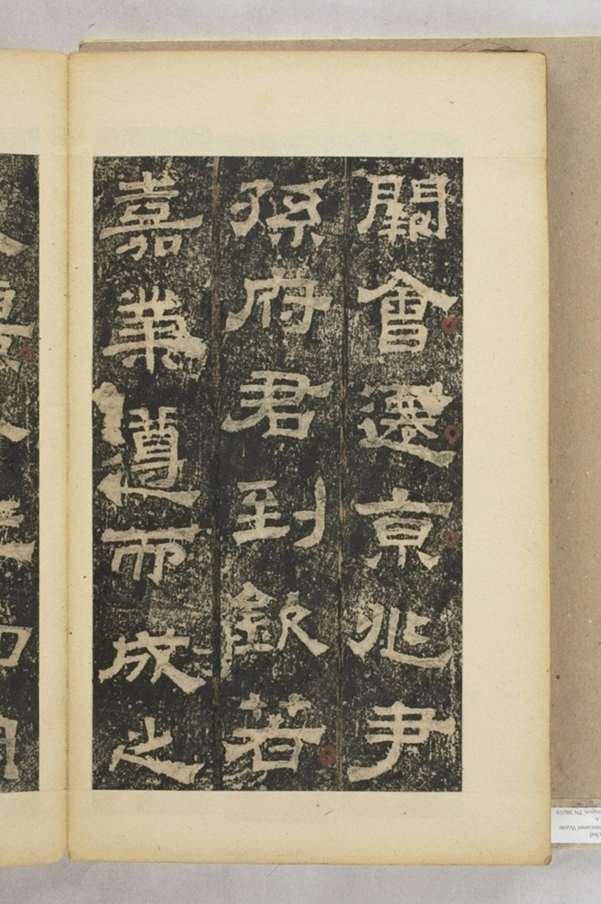 闕會遷京兆尹
孫府君到欽若
嘉業遵而成之